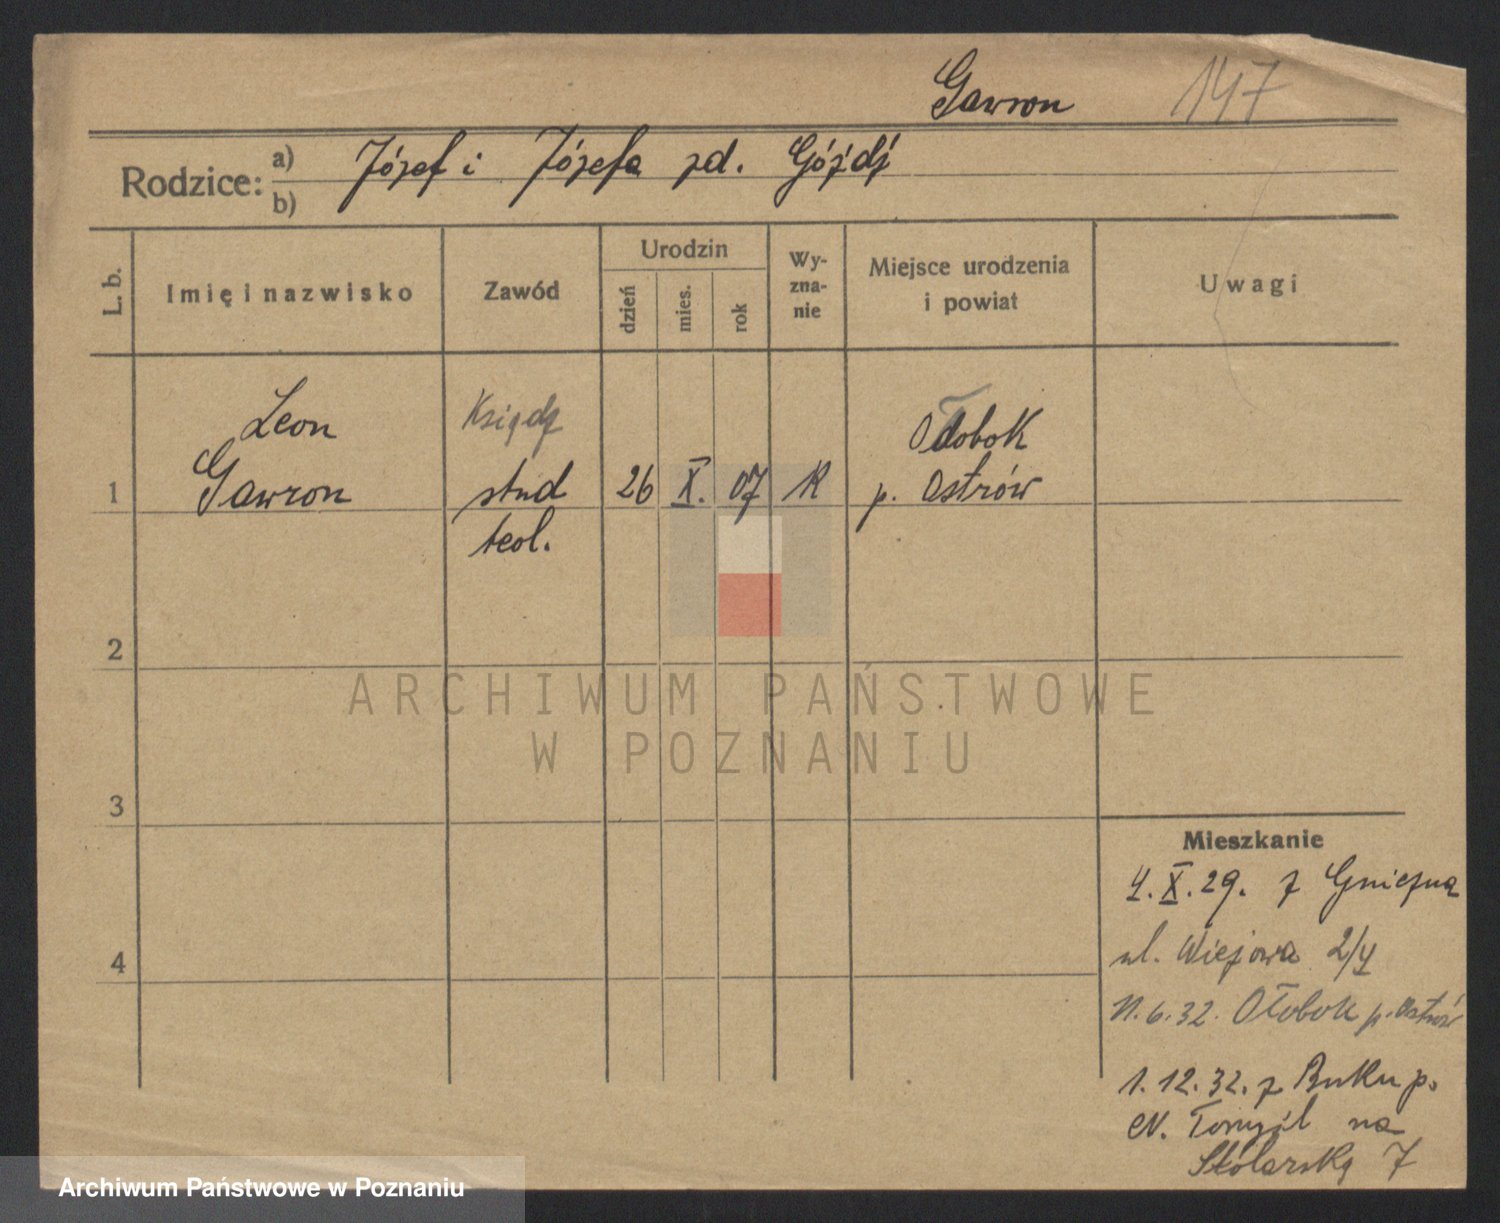 Gawron 147
Rodzice: a) Józef i Józefa zd. Góźdź
b)
L. b. Imię i nazwisko Zawód Urodzin dzień mies. rok Wy-zna-nie Miejsce urodzenia i powiat Uwagi
Leon Ksiądz Ołobok
1 Gawron stud 26 X. 07 K p. Ostrów
teol.
2
3
4
Mieszkanie
4.X.29. z Gniezna
ul. Wiejowa 2/4
11.6.32. Ołobok p. Ostrów
1.12.32. z Buku p.
N. Tomyśl na
Stolarską 7
ARCHIWUM PAŃSTWOWE
W POZNANIU
Archiwum Państwowe w Poznaniu